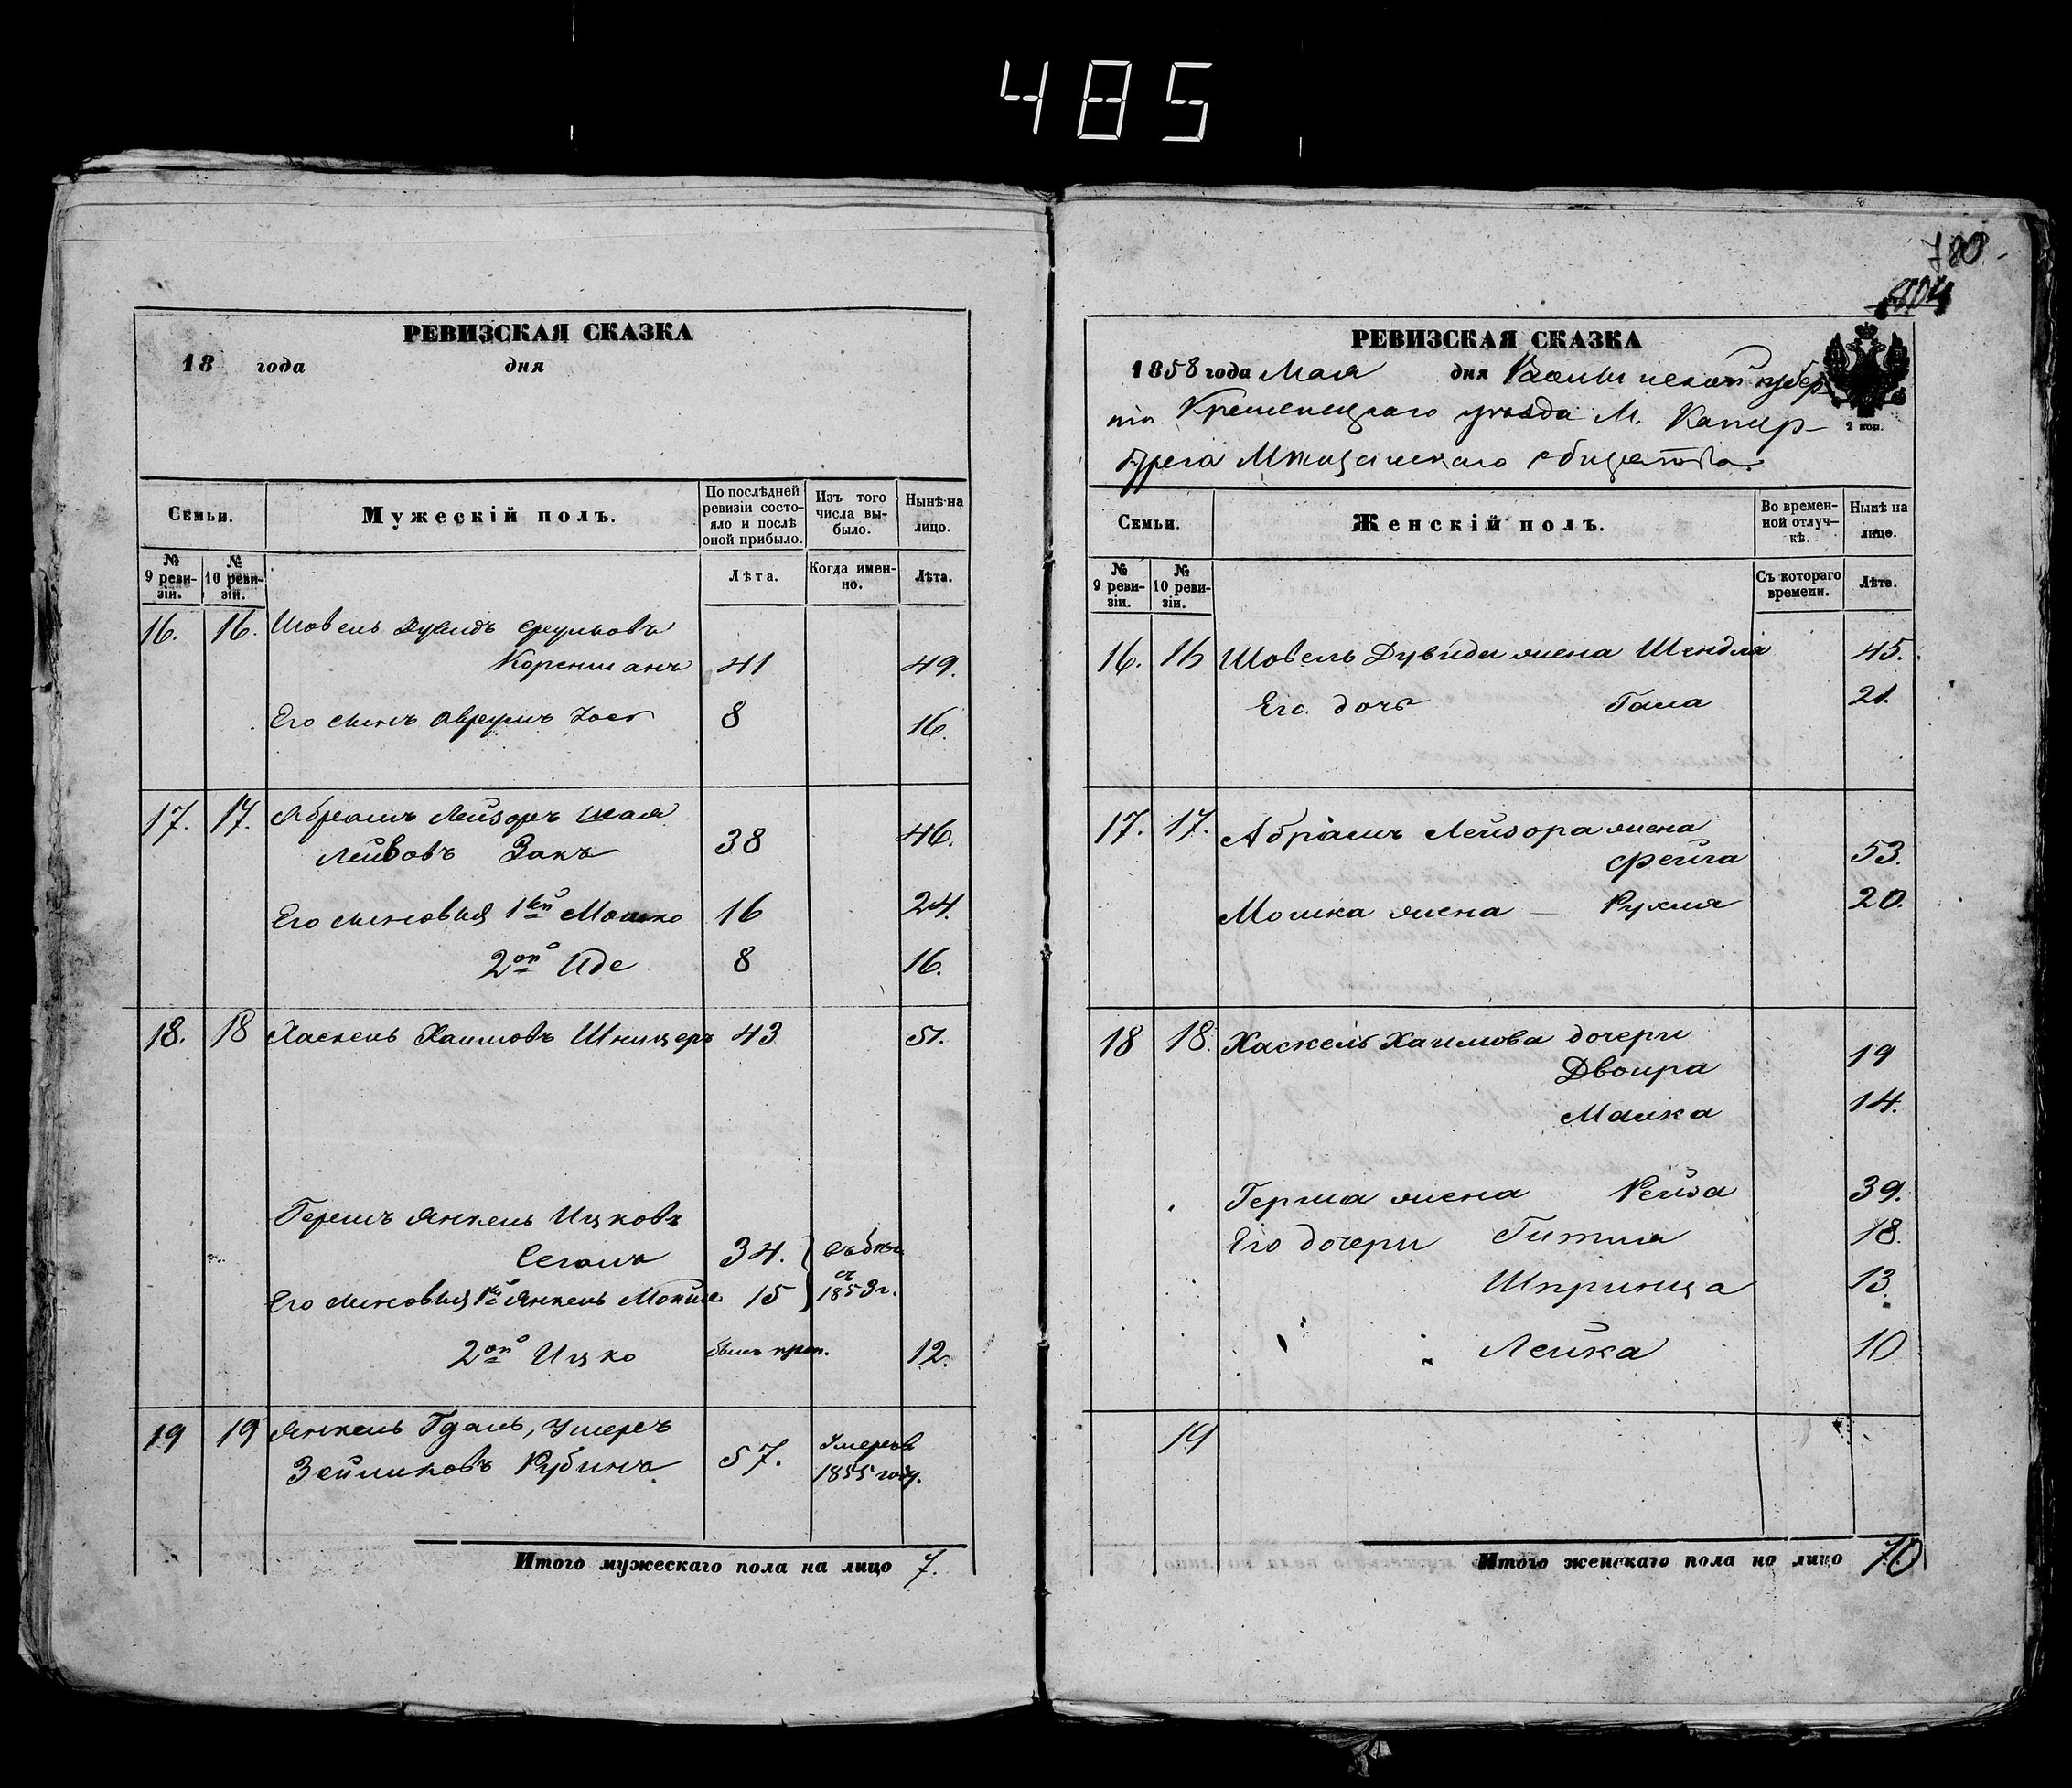 485
РЕВИЗСКАЯ СКАЗКА
18 года дня
Семьи.
Мужескій полъ.
По послѣдней ревизіи состояло и послѣ оной прибыло.
Изъ того числа выбыло.
Нынѣ на лицо.
№ 9 ревизіи.
№ 10 ревизіи.
Лѣта.
Когда именно.
Лѣта.
16. 16. Шовель Дувидъ
41 49.
Его сынъ Аврумъ 8 16.
17. 17. Абрамъ Лейзоръ Шая
Лейбовъ Закъ 38 46.
Его сыновья 1й Мошко 16 24.
2ой Иде 8 16.
18. 18 Хаскель Хаимовъ Шницеръ 43 51.
Гершъ Янкель Ицковъ
Сегалъ 34.
Его сыновья 1й Янкель 15 съ 1853 г.
2ой Ицко былъ проп. 12.
19 19 Янкель Гдаль, Умеръ
Зейликовъ Рубинъ 57. Умеръ в 1855 году.
Итого мужескаго пола на лицо 7.
780
804
РЕВИЗСКАЯ СКАЗКА
1858 года Мая дня Волынской губер
ніи Кременецкаго уѣзда М. Катер
бурга Мѣщанскаго общества.
2 коп.
Семьи.
Женскій полъ.
Во временной отлучкѣ.
Нынѣ на лицо.
№ 9 ревизіи.
№ 10 ревизіи.
Съ котораго времени.
Лѣта.
16. 16 Шовель Дувида жена Шендля 45.
Его дочь 21.
17. 17. Абрамъ Лейзора жена
Фейга 53.
Мошка жена — Рухля 20.
18 18. Хаскель Хаимова дочери
Двоира 19
Малка 14.
Герша жена Рейза 39.
Его дочери Гитля 18.
Шпринца 13.
Лейка 10
19
Итого женскаго пола на лицо 10